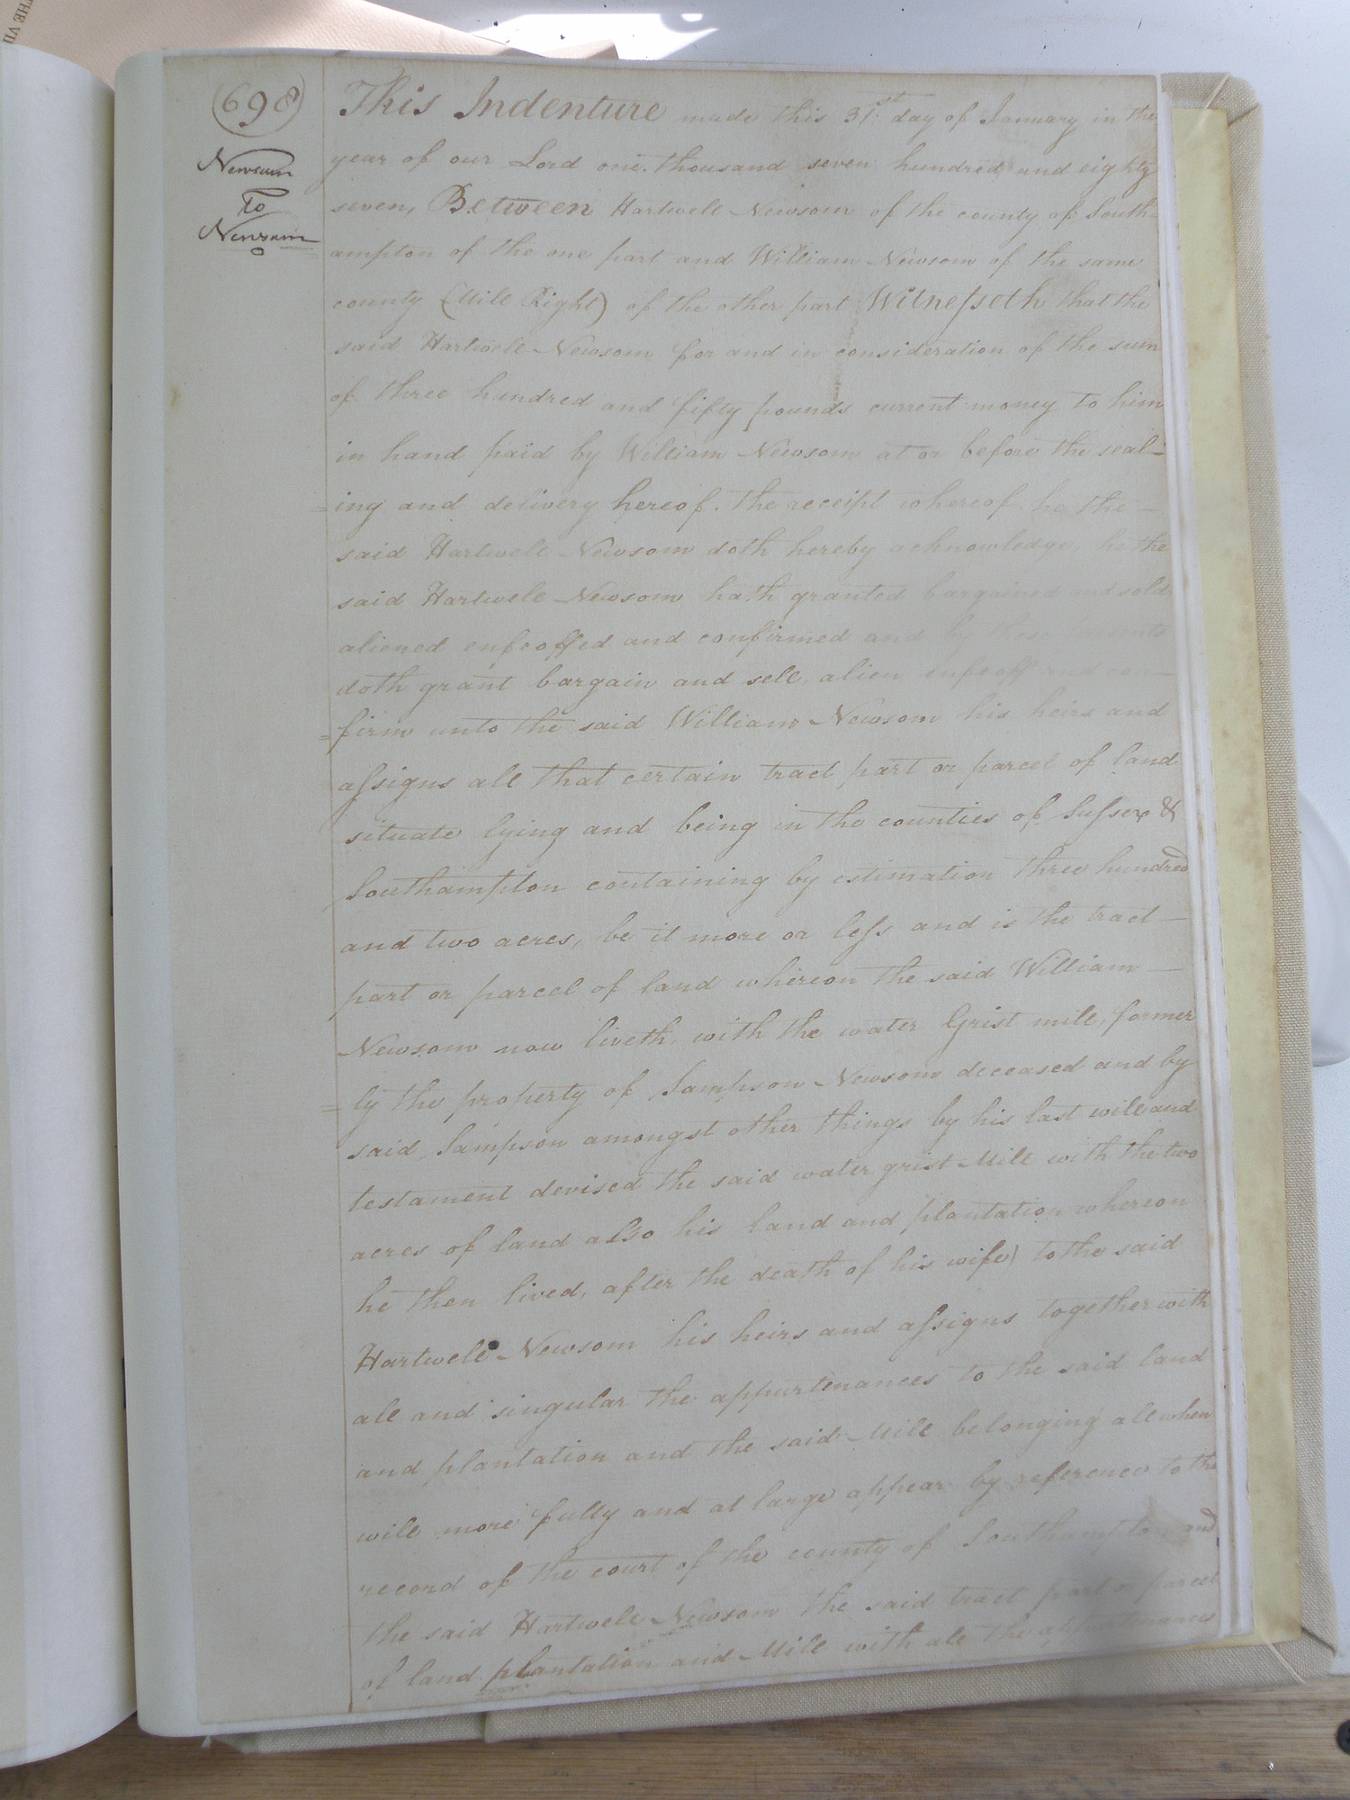 698
Newsum
To
Newsum
This Indenture made this 31st day of January in the
year of our Lord one thousand seven hundred and eighty
seven, Between Hartwell Newsom of the county of South-
ampton of the one part and William Newsom of the same
county (Mill Right) of the other part Witnesseth that the
said Hartwell Newsom for and in consideration of the sum
of three hundred and fifty pounds current money to him
in hand paid by William Newsom at or before the seal-
=ing and delivery hereof. the receipt whereof he the
said Hartwell Newsom doth hereby acknowledge he the
said Hartwell Newsom hath granted bargained and sold
aliened enfeoffed and confirmed and by these
doth grant bargain and sell, alien enfeoff and con-
=firm unto the said William Newsom his heirs and
assigns all that certain tract part or parcel of land
situate lying and being in the counties of Sussex &
Southampton containing by estimation three hundred
and two acres, be it more or less and is the tract
part or parcel of land whereon the said William
Newsom now liveth, with the water Grist mill, former
=ly the property of Sampson Newsom deceased and by
said Sampson amongst other things by his last will and
testament devised the said water grist Mill with the two
acres of land also his land and plantation whereon
he then lived, after the death of his wife) to the said
Hartwell Newsom his heirs and assigns together with
all and singular the appurtenances to the said land
and plantation and the said Mill belonging all when
will more fully and at large appear by reference to the
record of the court of the county of Southampton and
the said Hartwell Newsom the said tract part or parcel
of land plantation and Mill with all the appurtenances
THE VI